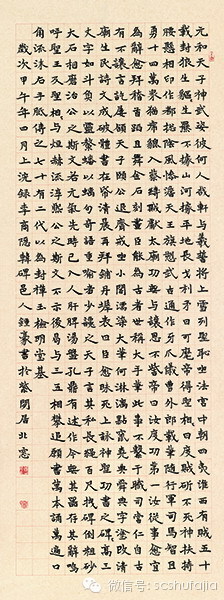 元和天子神武姿彼何人哉軒與羲誓將上雪列聖恥坐法宮中朝四夷淮西有賊五十
載封狼生貙貙生羆不據山河據平地長戈利矛日可麾帝得聖相相曰度賊斫不死神扶持
腰懸相印作都統陰風慘澹天王旗愬武古通作牙爪儀曹外郎載筆隨行軍司馬智且
勇十四萬衆猶虎貔入蔡縛賊獻太廟功無與讓恩不訾帝曰汝度功第一汝從事愈宜
為辭愈拜稽首蹈且舞金石刻畫臣能為古者世稱大手筆此事不繫于職司當仁自古
有不讓言訖屢頷天子頤公退齋戒坐小閣濡染大筆何淋漓點竄堯典舜典字塗改清
廟生民詩文成破體書在紙清晨再拜鋪丹墀表曰臣愈昧死上詠神聖功書之碑高三
文字如斗負以靈鰲蟠以螭句奇語重喻者少讒之天子言其私長繩百尺拽碑倒粗砂
大石相磨治公之斯文若元氣先時已入人肝脾湯盤孔鼎有述作今無其器存其辭嗚
呼聖王及聖相相與烜赫流淳熙公之斯文不示後曷與三五相攀追願書萬本誦萬過口
角流沫右手胝傳之七十有二代以為封禪玉檢明堂基
歲次甲午年四月上浣錄李商隱韓碑邑人鍾豪書於閒居北窗
微信号: scshufajia